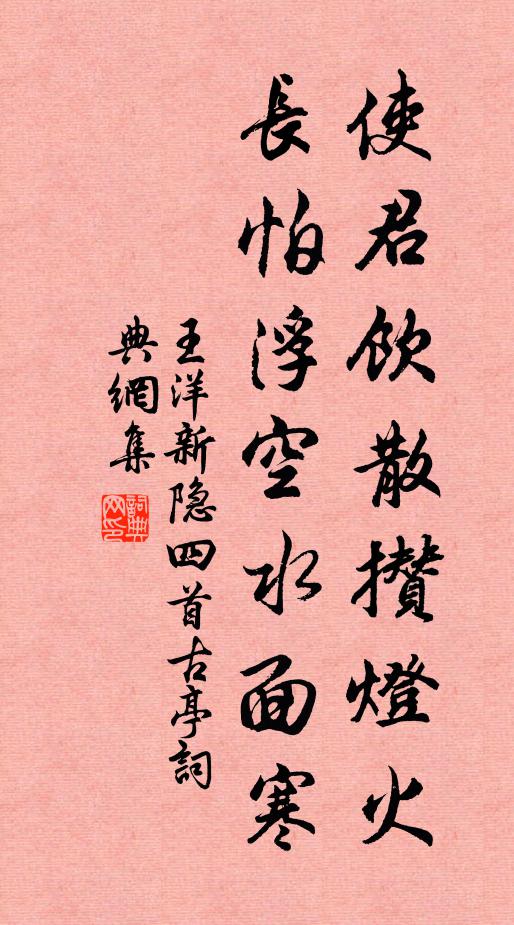 使君飲散攢燈火
長怕浮空水面寒
王洋新隐四首古亭詞
典網集
詞典网印